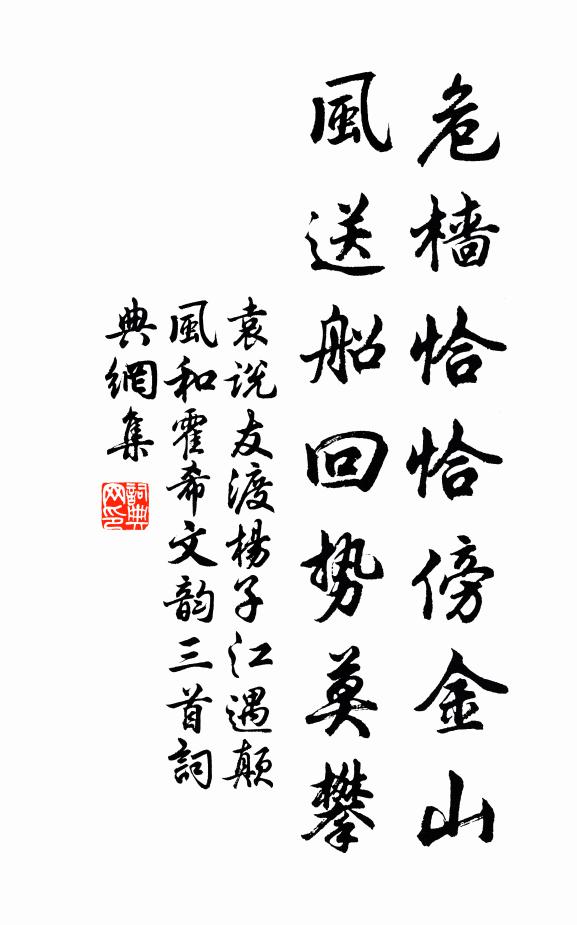 危檣恰恰傍金山
風送船回势莫攀
袁说友渡楊子江遇颠
風和霍希文韵三首詞
典網集
詞典网印